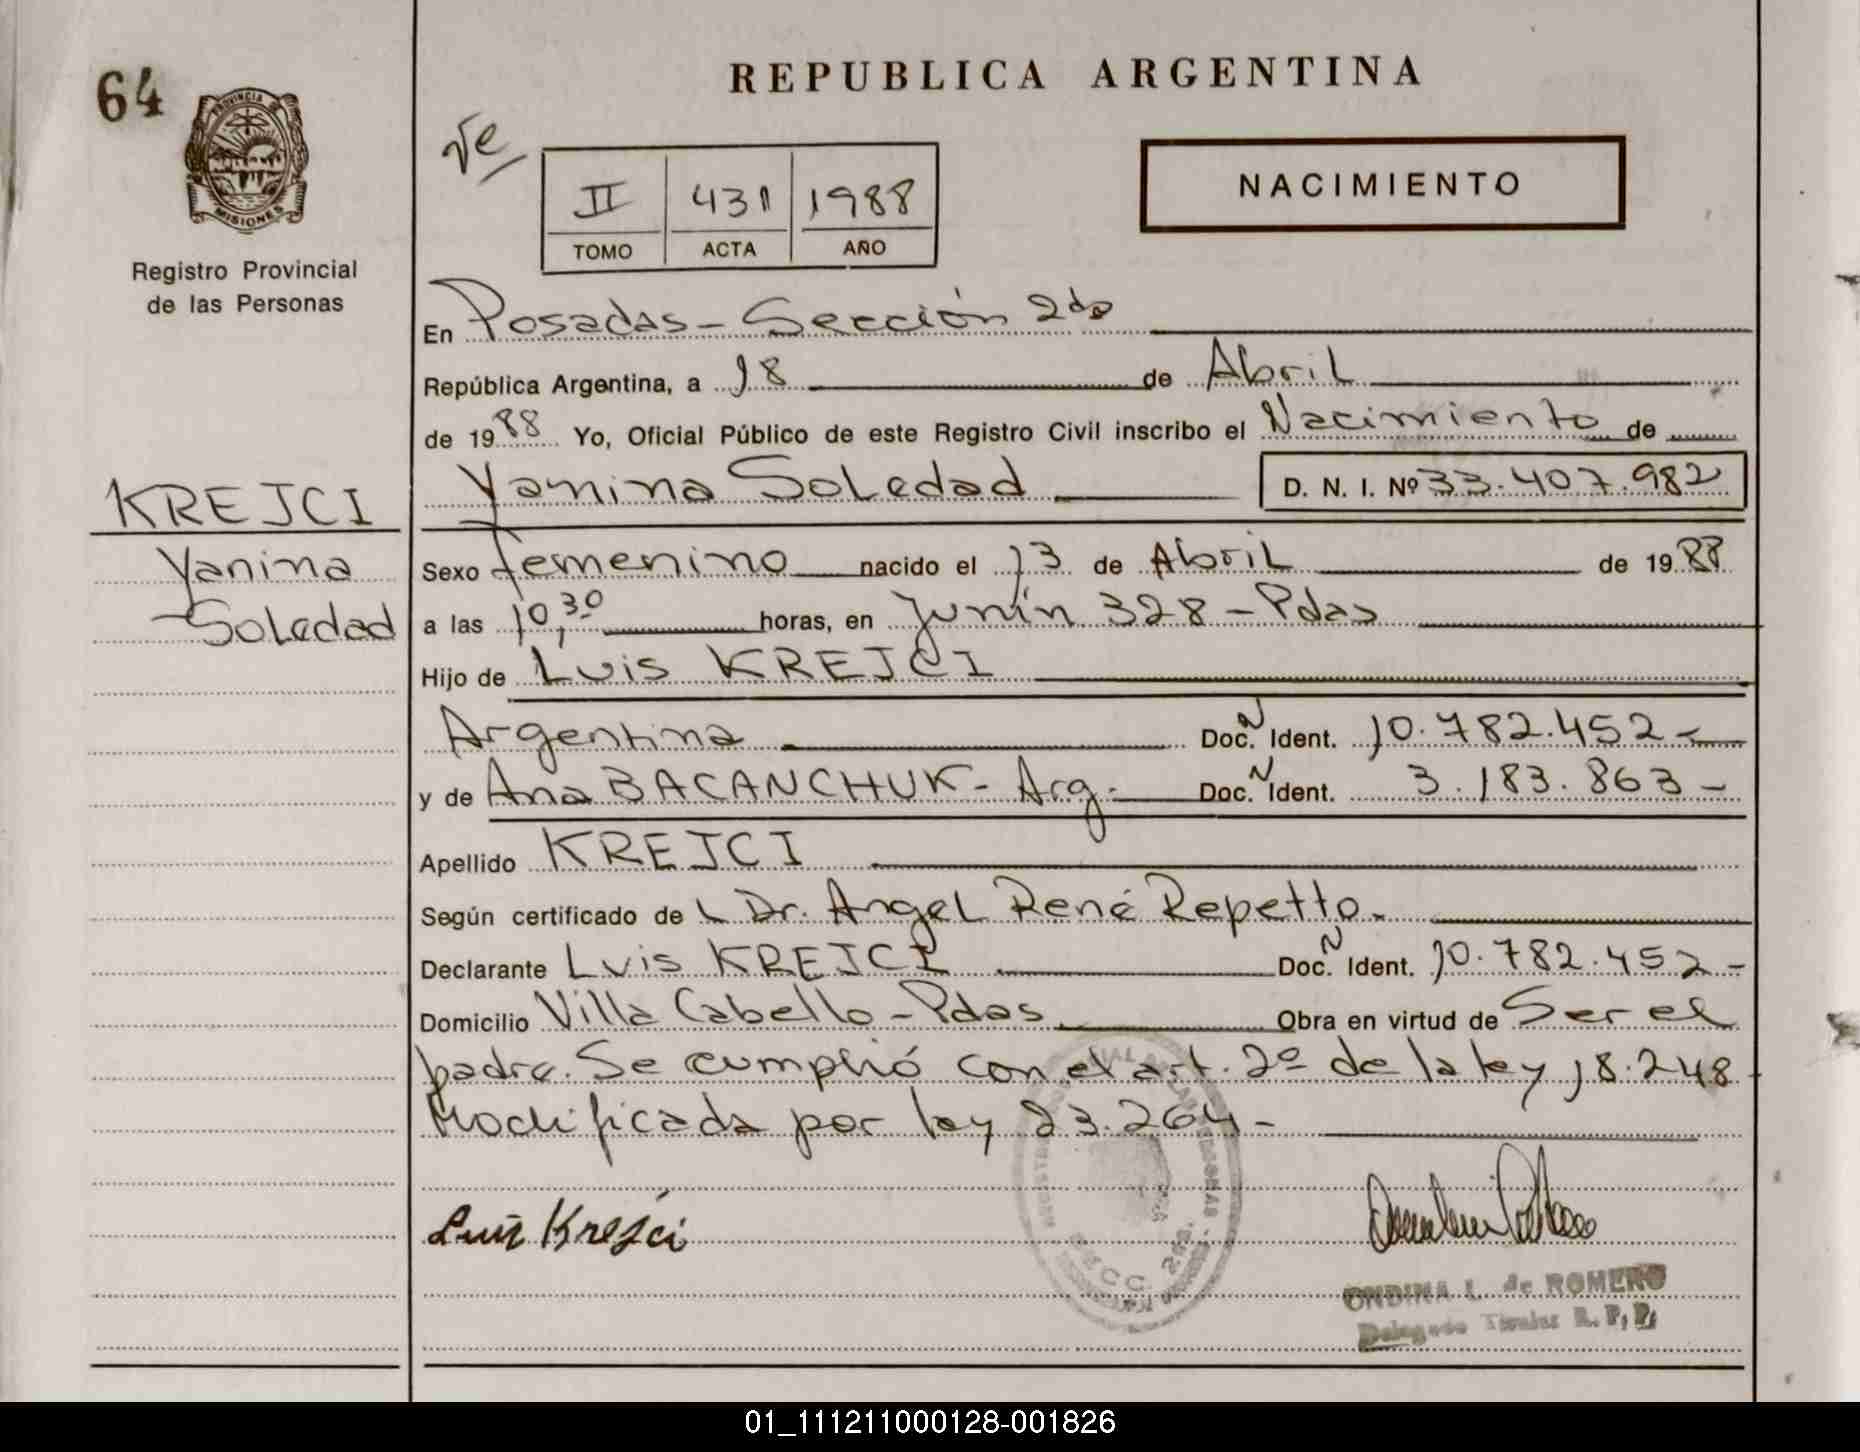 64
PROVINCIA DE
MISIONES
Registro Provincial
de las Personas
KREJCI
Yanina
Soledad
REPUBLICA ARGENTINA
II 431 1988
TOMO ACTA AÑO
NACIMIENTO
En Posadas - Sección 2da
República Argentina, a 18 de Abril
de 1988 Yo, Oficial Público de este Registro Civil inscribo el Nacimiento de
Yanina Soledad D. N. I. Nº 33.407.982
Sexo femenino nacido el 13 de Abril de 1988
a las 10,30 horas, en Junín 328 - Pdas
Hijo de Luis KREJCI
Argentina Doc. Ñ Ident. 10.782.452 -
y de Ana BACANCHUK - Arg. Doc. Ñ Ident. 3.183.863 -
Apellido KREJCI
Según certificado de L Dr. Angel René Repetto.
Declarante Luis KREJCI Doc. Ñ Ident. 10.782.452 -
Domicilio Villa Cabello - Pdas Obra en virtud de Ser el
padre. Se cumplió con el art. 2º de la ley 18.248
Modificada por ley 23.264 -
Luis Krejci
ONDINA L. de ROMERO
Delegado Titular R. P. P.
01_111211000128-001826